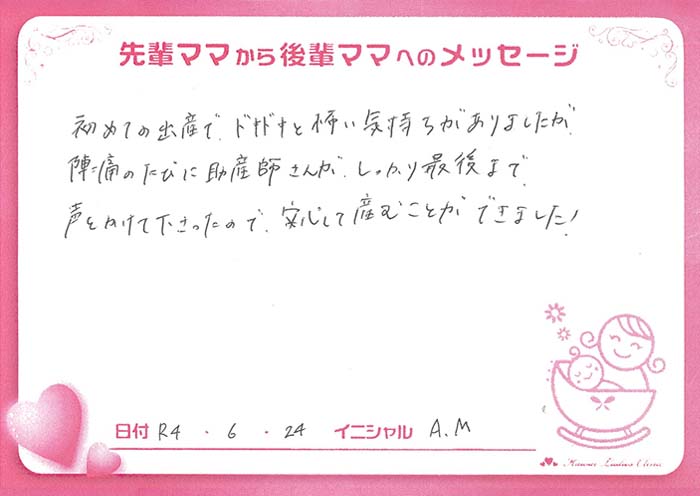 先輩ママから後輩ママへのメッセージ
初めての出産で、ドキドキと怖い気持ちがありましたが、
陣痛のたびに助産師さんが、しっかり最後まで、
声をかけて下さったので、安心して産むことができました!
日付 R4 ・ 6 ・ 24 イニシャル A.M
Ladies Clinic